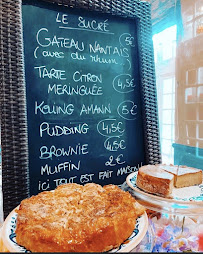 LE SUCRÉ
GATEAU NANTAIS 5€
(avec du rhum)
TARTE CITRON
MERINGUÉE 4,5€
KOUING AMANN 5€
PUDDING 4,5€
BROWNIE 4,5€
MUFFIN 2€
ici TOUT EST FAIT MAISON